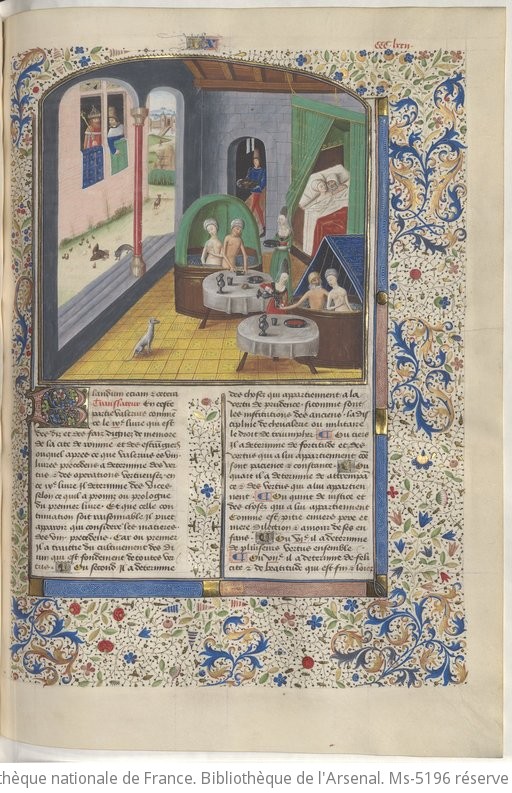 IX
CCC lxxii
Blandum etiam et cetera
Translateur En ceste
partie valerius commen
ce le ixe. livre qui est
des dis et des fais dignes de memoire
de la cite de romme et des estranges
ouquel apres ce que valerius es viii
livres precedens a determine des ver
tus et des operations vertueuses en
ce ixe livre il determine des vices
selon ce quil a promis ou prologue
du premier livre Et que celle con
tinuation soit raisonnable il puet
apparoir qui considere les matieres
des viii precedens Car ou premier
il a traictie du cultivement des di
eux qui est fondement de toutes ver
tus Ou second il a determine
des choses qui appartiennent a la
vertu de prudence sicomme sont
les institutions des anciens la dis
cipline de chevalerie ou militaire
le droit de triumpher Ou tiers
il a determine de fortitude et des
vertus qui a lui appartiennent come
sont pacience et constance Ou
quart il a determine de attrempan
ce et des vertus qui a lui appartien
nent Ou quint de justice et
des choses qui a lui appartiennent
Comme est pitie envers pere et
mere dilection et amour de ses en
fans Ou vie. il a determine
de pluiseurs vertus ensemble
Ou viie. il a determine de feli
cite et de beatitude qui est fin et loier
thèque nationale de France. Bibliothèque de l'Arsenal. Ms-5196 réserve